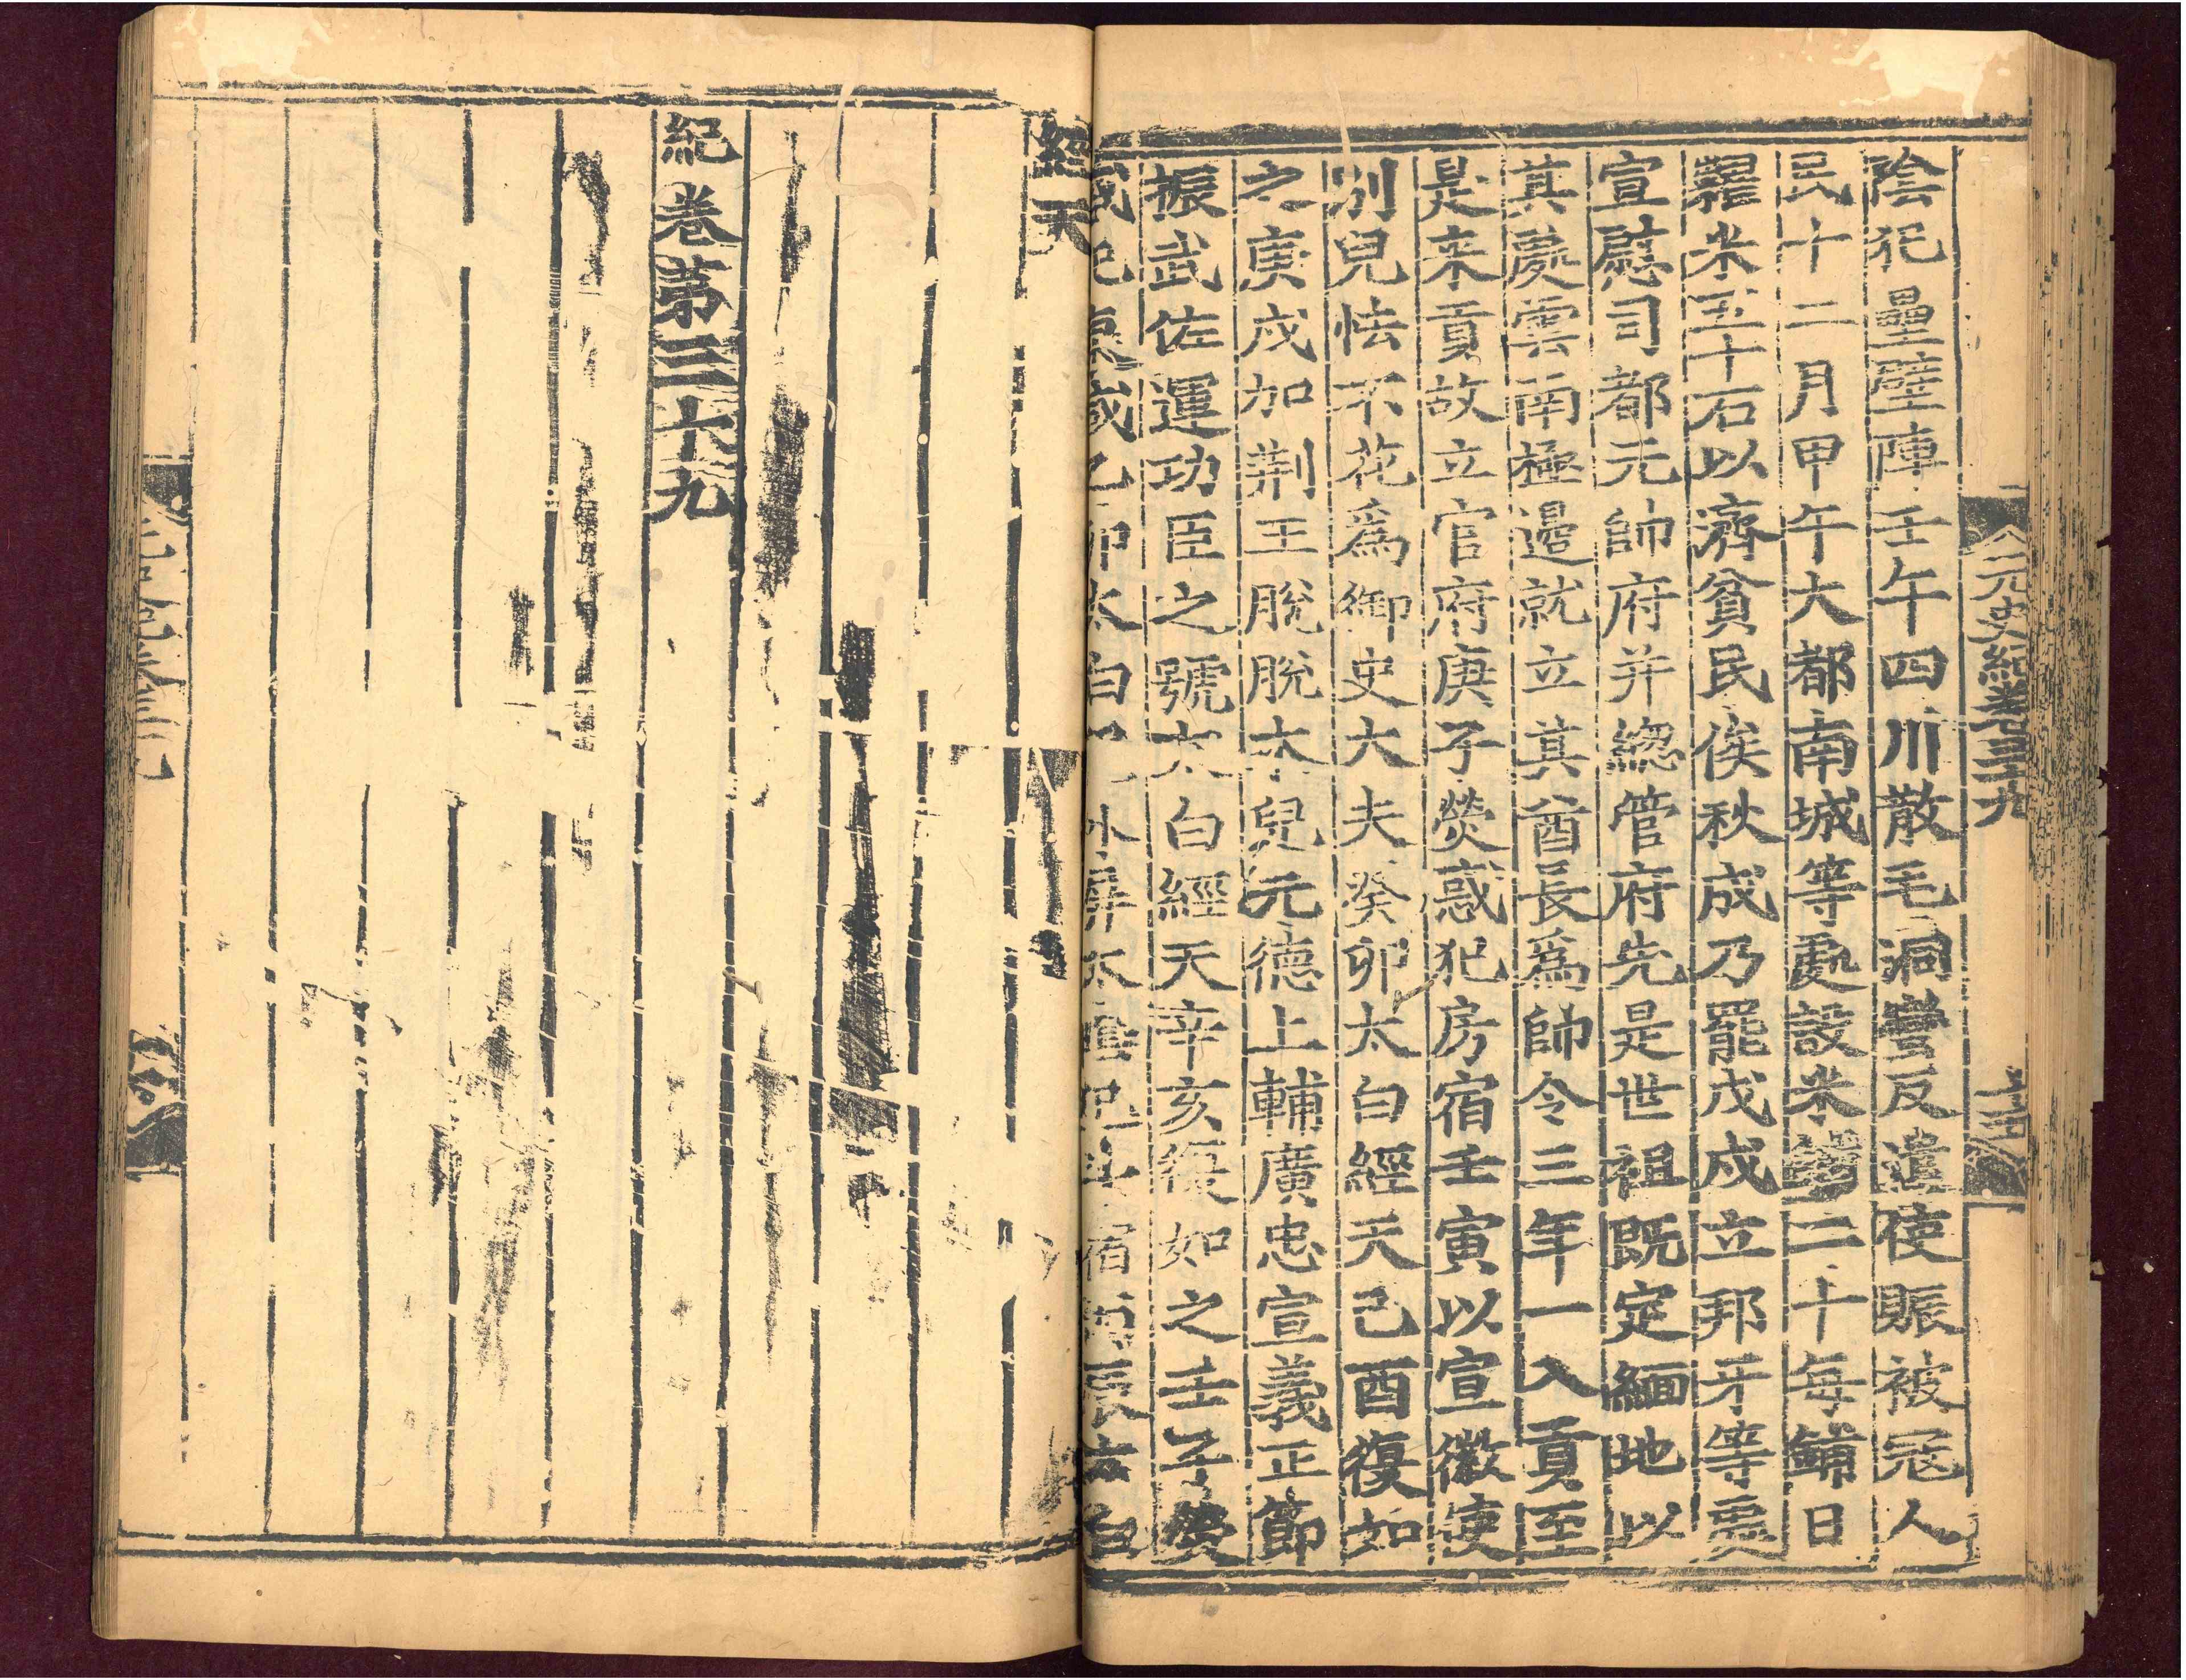 元史紀卷三十九
陰犯壘壁陣壬午四川散毛洞蠻反遣使賑被寇人
民十二月甲午大都南城等處設米鋪二十每鋪日
糶米五十石以濟貧民俟秋成乃罷戊戌立邦牙等處
宣慰司都元帥府并緫管府先是世祖既定緬地以
其處雲南極邊就立其酋長爲帥令三年一入貢至
是来貢故立官府庚子熒惑犯房宿壬寅以宣徽使
别兒怯不花爲御史大夫癸卯太白經天己酉復如
之庚戌加荆王脫脫木兒元德上輔廣忠宣義正節
振武佐運功臣之號太白經天辛亥復如之壬子
乙卯太白犯太宿
經天
紀卷第三十九